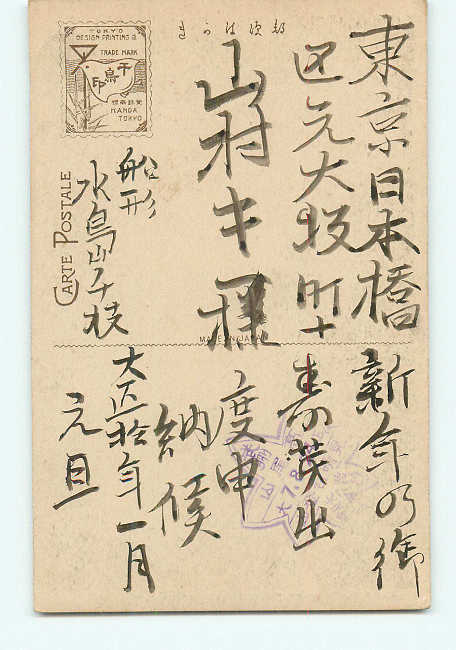 郵便はかき
TOKYO
DESIGN PRINTING
TRADE MARK
千鳥印
KANDA
TOKYO
CARTE POSTALE
東京日本橋
区元大坂町十
山村キ一様
船形
水島山千枝
MADE IN JAPAN
新年の御
寿芽出
度申
納候
大正拾年一月
元旦